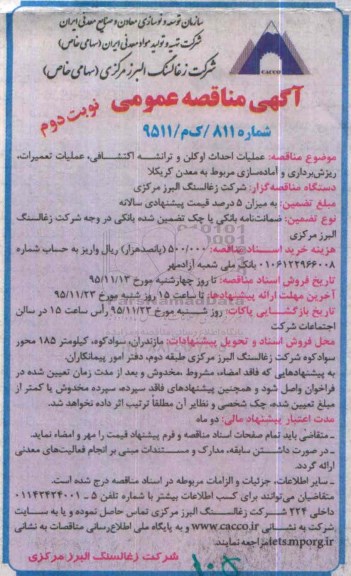 سازمان توسعه و نوسازی معادن و صنایع معدنی ایران
شرکت تهیه و تولید مواد معدنی ایران (سهامی خاص)
شرکت زغالسنگ البرز مرکزی (سهامی خاص)
CACCO
آگهی مناقصه عمومی نوبت دوم
شماره ۸۱۱/ک‌م/۹۵۱۱
موضوع مناقصه: عملیات احداث اوکلن و ترانشه اکتشافی، عملیات تعمیرات،
ریزش‌برداری و آماده‌سازی مربوط به معدن کربکلا
دستگاه مناقصه‌گزار: شرکت زغالسنگ البرز مرکزی
مبلغ تضمین: به میزان ۵ درصد قیمت پیشنهادی سالانه
نوع تضمین: ضمانت‌نامه بانکی یا چک تضمین شده بانکی در وجه شرکت زغالسنگ
البرز مرکزی
هزینه خرید اسناد مناقصه: ۵۰۰/۰۰۰ (پانصدهزار) ریال واریز به حساب شماره
۰۱۰۶۱۲۲۹۶۶۰۰۸ بانک ملی شعبه آزادمهر
تاریخ فروش اسناد مناقصه: تا روز چهارشنبه مورخ ۹۵/۱۱/۱۳
آخرین مهلت ارائه پیشنهادها: تا ساعت ۱۵ روز شنبه مورخ ۹۵/۱۱/۲۳
تاریخ بازگشایی پاکات: روز شنبه مورخ ۹۵/۱۱/۲۳ رأس ساعت ۱۵ در سالن
اجتماعات شرکت
محل فروش اسناد و تحویل پیشنهادات: مازندران، سوادکوه، کیلومتر ۱۸۵ محور
سوادکوه شرکت زغالسنگ البرز مرکزی طبقه دوم، دفتر امور پیمانکاران.
به پیشنهادهایی که فاقد امضاء، مشروط، مخدوش و بعد از مدت زمان تعیین شده در
فراخوان واصل شود و همچنین پیشنهادهای فاقد سپرده، سپرده مخدوش یا کمتر از
مبلغ تعیین شده، چک شخصی و نظایر آن مطلقاً ترتیب اثر داده نخواهد شد.
مدت اعتبار پیشنهاد مالی: دو ماه
ـ متقاضی باید تمام صفحات اسناد مناقصه و فرم پیشنهاد قیمت را مهر و امضاء نماید.
ـ در صورت داشتن سابقه، مدارک و مستندات مبنی بر انجام فعالیت‌های معدنی
ارائه گردد.
ـ سایر اطلاعات، جزئیات و الزامات مربوطه در اسناد مناقصه درج شده است.
متقاضیان می‌توانند برای کسب اطلاعات بیشتر با شماره تلفن ۵ - ۰۱۱۴۲۴۲۴۰۰۱
داخلی ۲۲۴ شرکت زغالسنگ البرز مرکزی تماس حاصل نموده و یا به سایت
شرکت به نشانی www.cacco.ir و به پایگاه ملی اطلاع‌رسانی مناقصات به نشانی
iets.mporg.ir مراجعه نمایند.
شرکت زغالسنگ البرز مرکزی